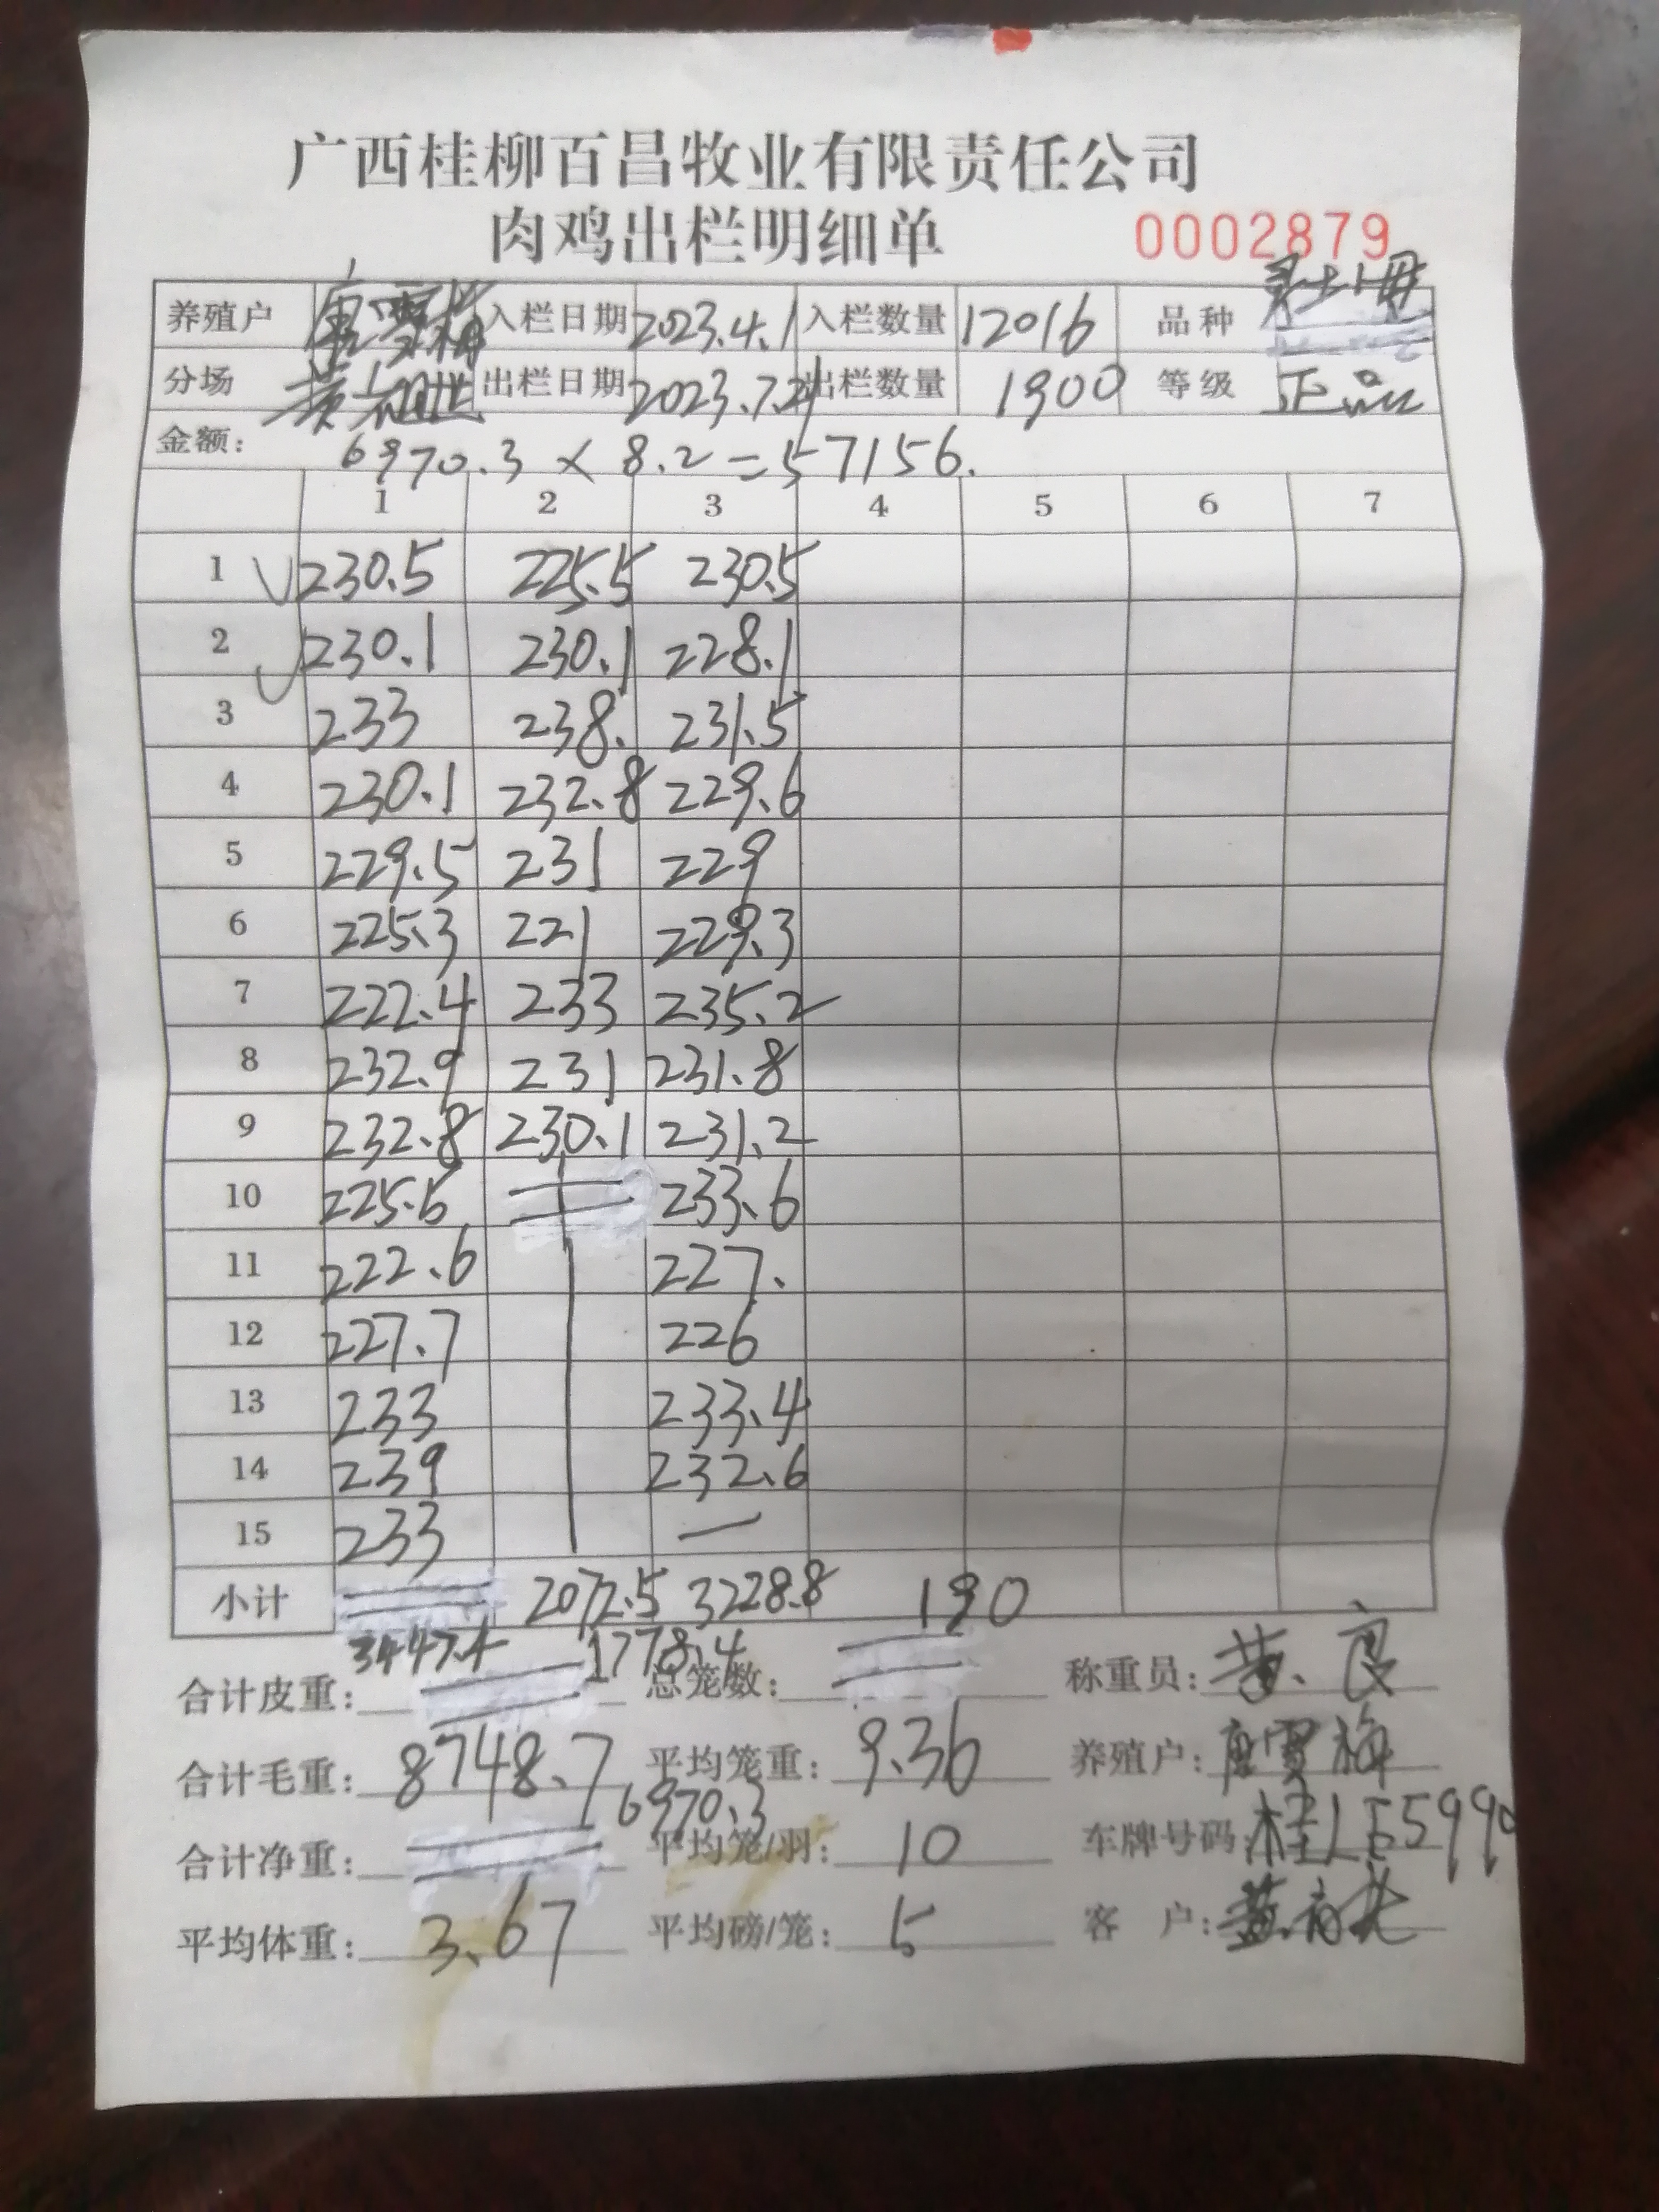 广西桂柳百昌牧业有限责任公司
肉鸡出栏明细单 0002879
养殖户 唐雪梅 入栏日期 2023.4.1 入栏数量 12016 品种
分场 出栏日期 2023.7.21 出栏数量 1900 等级 正品
金额: 6970.3 × 8.2 = 57156.
1 2 3 4 5 6 7
1 230.5 225.5 230.5
2 230.1 230.1 228.1
3 233 238. 231.5
4 230.1 232.8 229.6
5 229.5 231 229
6 225.3 221 229.3
7 222.4 233 235.2
8 232.9 231 231.8
9 232.8 230.1 231.2
10 225.5 233.6
11 222.6 227.
12 227.7 226
13 233 233.4
14 239 232.6
15 233 —
小计 3447.4 2072.5 3228.8 190
合计皮重: 1778.4 总笼数: 称重员: 黄良
合计毛重: 8748.7 平均笼重: 9.36 养殖户: 唐雪梅
合计净重: 6970.3 平均笼/羽: 10 车牌号码: 桂LE5990
平均体重: 3.67 平均磅/笼: 5 客户: